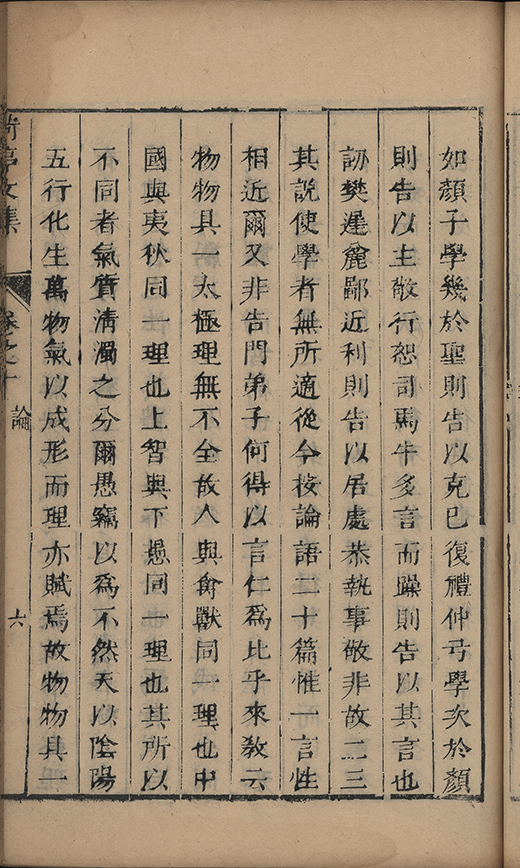 如顏子學幾於聖則告以克己復禮仲弓學次於顏
則告以主敬行恕司馬牛多言而躁則告以其言也
訒樊遲麄鄙近利則告以居處恭執事敬非故二三
其說使學者無所適從今按論語二十篇惟一言性
相近爾又非告門弟子何得以言仁爲比乎來教云
物物具一太極理無不全故人與禽獸同一理也中
國與夷狄同一理也上智與下愚同一理也其所以
不同者氣質清濁之分爾愚竊以爲不然天以陰陽
五行化生萬物氣以成形而理亦賦焉故物物具一
文集
卷之十
論
六